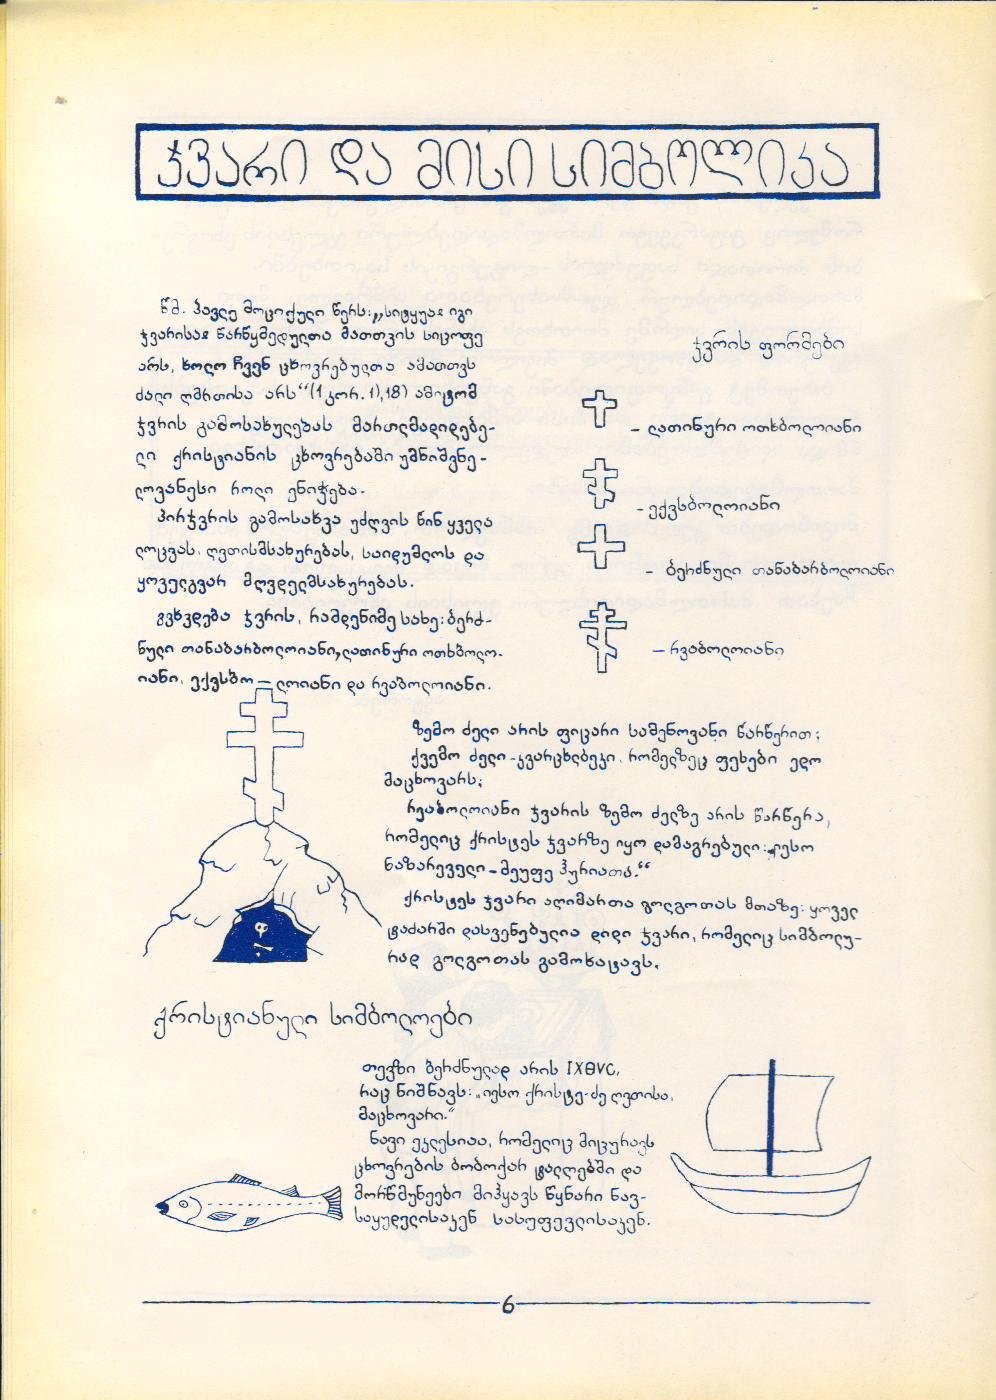 ჯვარი და მისი სიმბოლიკა
წმ. პავლე მოციქული წერს: „სიტყუაჲ იგი
ჯვარისაჲ წარწყმედულთა მათთვის სიცოფე
არს, ხოლო ჩვენ ცხოვრებულთა ამათთვს
ძალი ღმრთისა არს“ (1 კორ. 1),18) ამიტომ
ჯვრის გამოსახულებას მართლმადიდებე-
ლი ქრისტიანის ცხოვრებაში უმნიშვნე-
ლოვანესი როლი ენიჭება.
პირჯვრის გამოსახვა უძღვის წინ ყველა
ლოცვას, ღვთისმსახურებას, საიდუმლოს და
ყოველგვარ მღვდელმსახურებას.
გვხვდება ჯვრის, რამდენიმე სახე: ბერძ-
ნული თანაბარბოლოიანი, ლათინური ოთხბოლო-
იანი, ექვსბო-ლოიანი და რვაბოლოიანი.
ჯვრის ფორმები
- ლათინური ოთხბოლოიანი
- ექვსბოლოიანი
- ბერძნული თანაბარბოლოიანი
- რვაბოლოიანი
ზემო ძელი არის ფიცარი სამენოვანი წარწერით;
ქვემო ძელი - კვარცხლბეკი, რომელზეც ფეხები ედო
მაცხოვარს;
რვაბოლოიანი ჯვარის ზემო ძელზე არის წარწერა,
რომელიც ქრისტეს ჯვარზე იყო დამაგრებული: „იესო
ნაზარეველი - მეუფე ჰურიათა.“
ქრისტეს ჯვარი აღიმართა გოლგოთას მთაზე: ყოველ
ტაძარში დასვენებულია დიდი ჯვარი, რომელიც სიმბოლუ-
რად გოლგოთას გამოხატავს.
ქრისტიანული სიმბოლოები
თევზი ბერძნულად არის ΙΧΘVC,
რაც ნიშნავს: „იესო ქრისტე-ძე ღვთისა,
მაცხოვარი.“
ნავი ეკლესიაა, რომელიც მიცურავს
ცხოვრების ბობოქარ ტალღებში და
მორწმუნეები მიჰყავს წყნარი ნავ-
საყუდელისაკენ სასუფევლისაკენ.
6